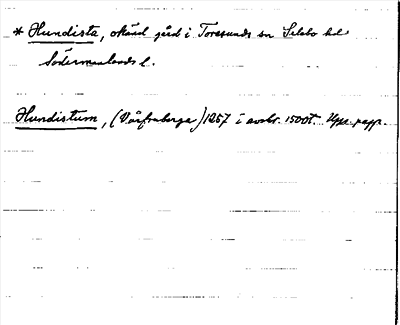 * Hundista, okänd gård i Toresunds sn Selebo hd
Södermanlands l.
Hundistum, (Vårfruberga) 1257 i avskr. 1500t. Upps. papp.